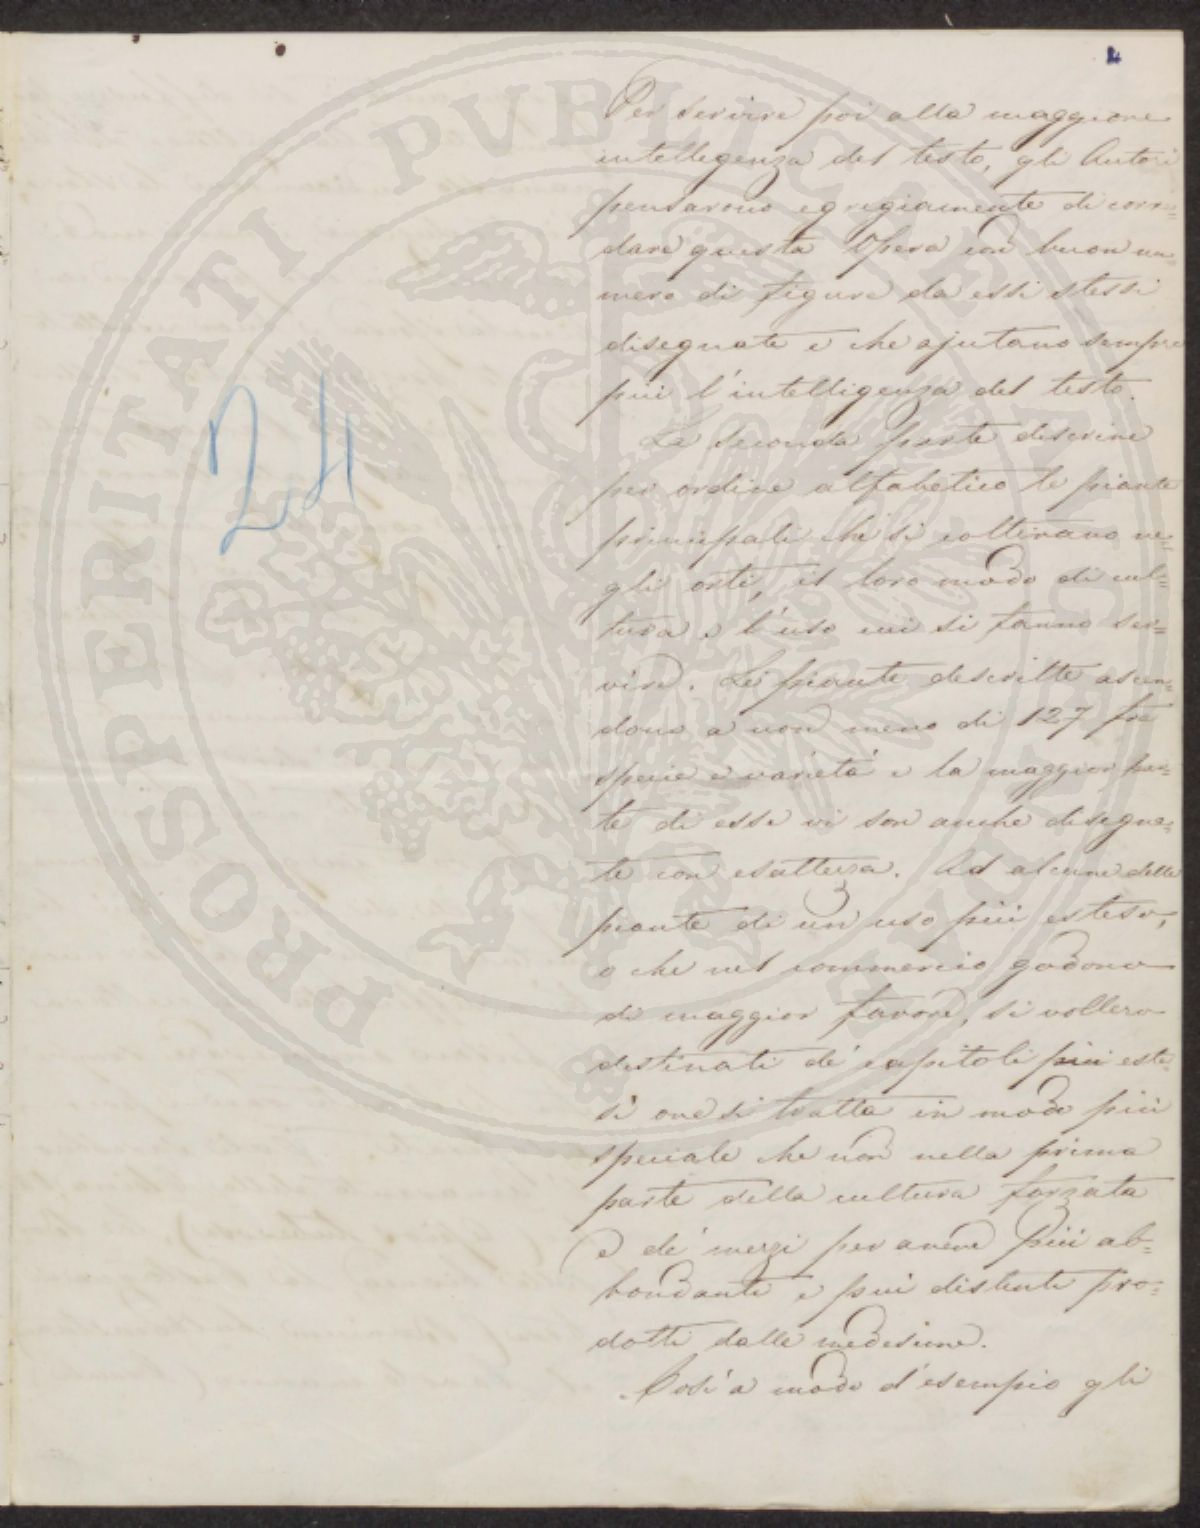 4
Per servire poi alla maggiore
intellegenza del testo, gli Autori
pensarono egregiamente di corre=
dare questa Opera con buon nu=
mero di figure da essi stessi
disegnate e che ajutano sempre
più l'intelligenza del testo.
La seconda parte descrive
per ordine alfabetico le piante
principali che si coltivano ne=
gli orti, il loro modo di cul=
tura e l'uso cui si fanno ser=
vire. Le piante descritte ascen=
dono a non meno di 127 fra
specie e varietà e la maggior par=
te di esse vi son anche disegna=
te con esattezza. Ad alcune delle
piante di un uso più esteso,
o che nel commercio godono
di maggior favore, si vollero
destinati de' capitoli più este
si ove si tratta in modo più
speciale che non nella prima
parte della cultura forzata
e de' mezzi per avere più ab=
bondanti e più distinti pro=
dotti dalle medesime.
Così a modo d'esempio gli
24
PROSPERITATI PVBLICAE